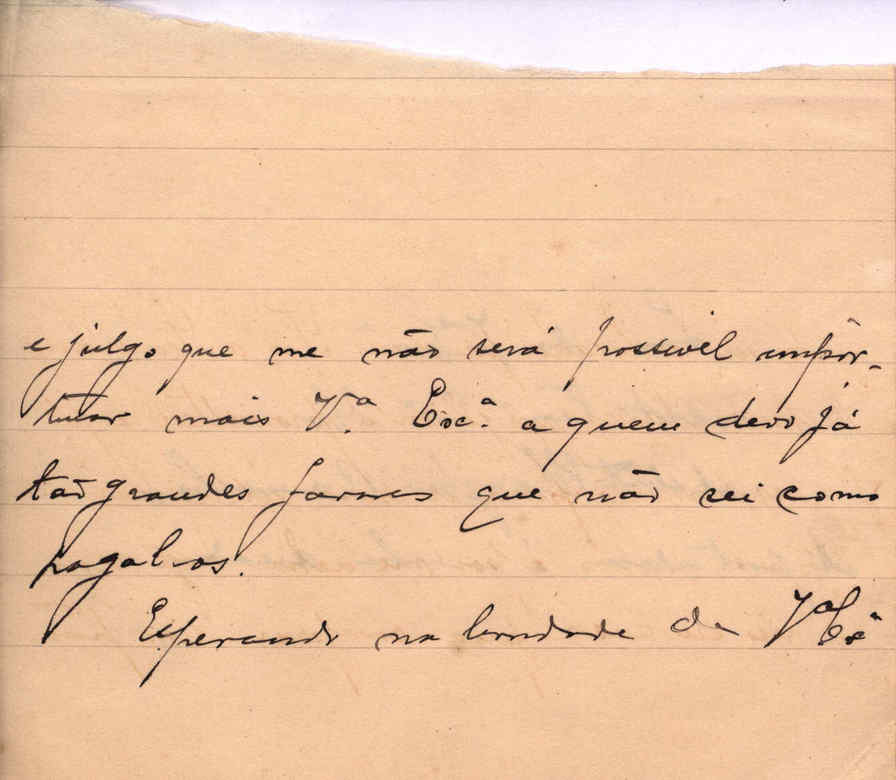 e julgo que me não será possivel impor-
tunar mais V.ª Exc.ª a quem devo já
tão grandes favores que não sei como
pagal-os.
Esperando na bondade de Vª Exª